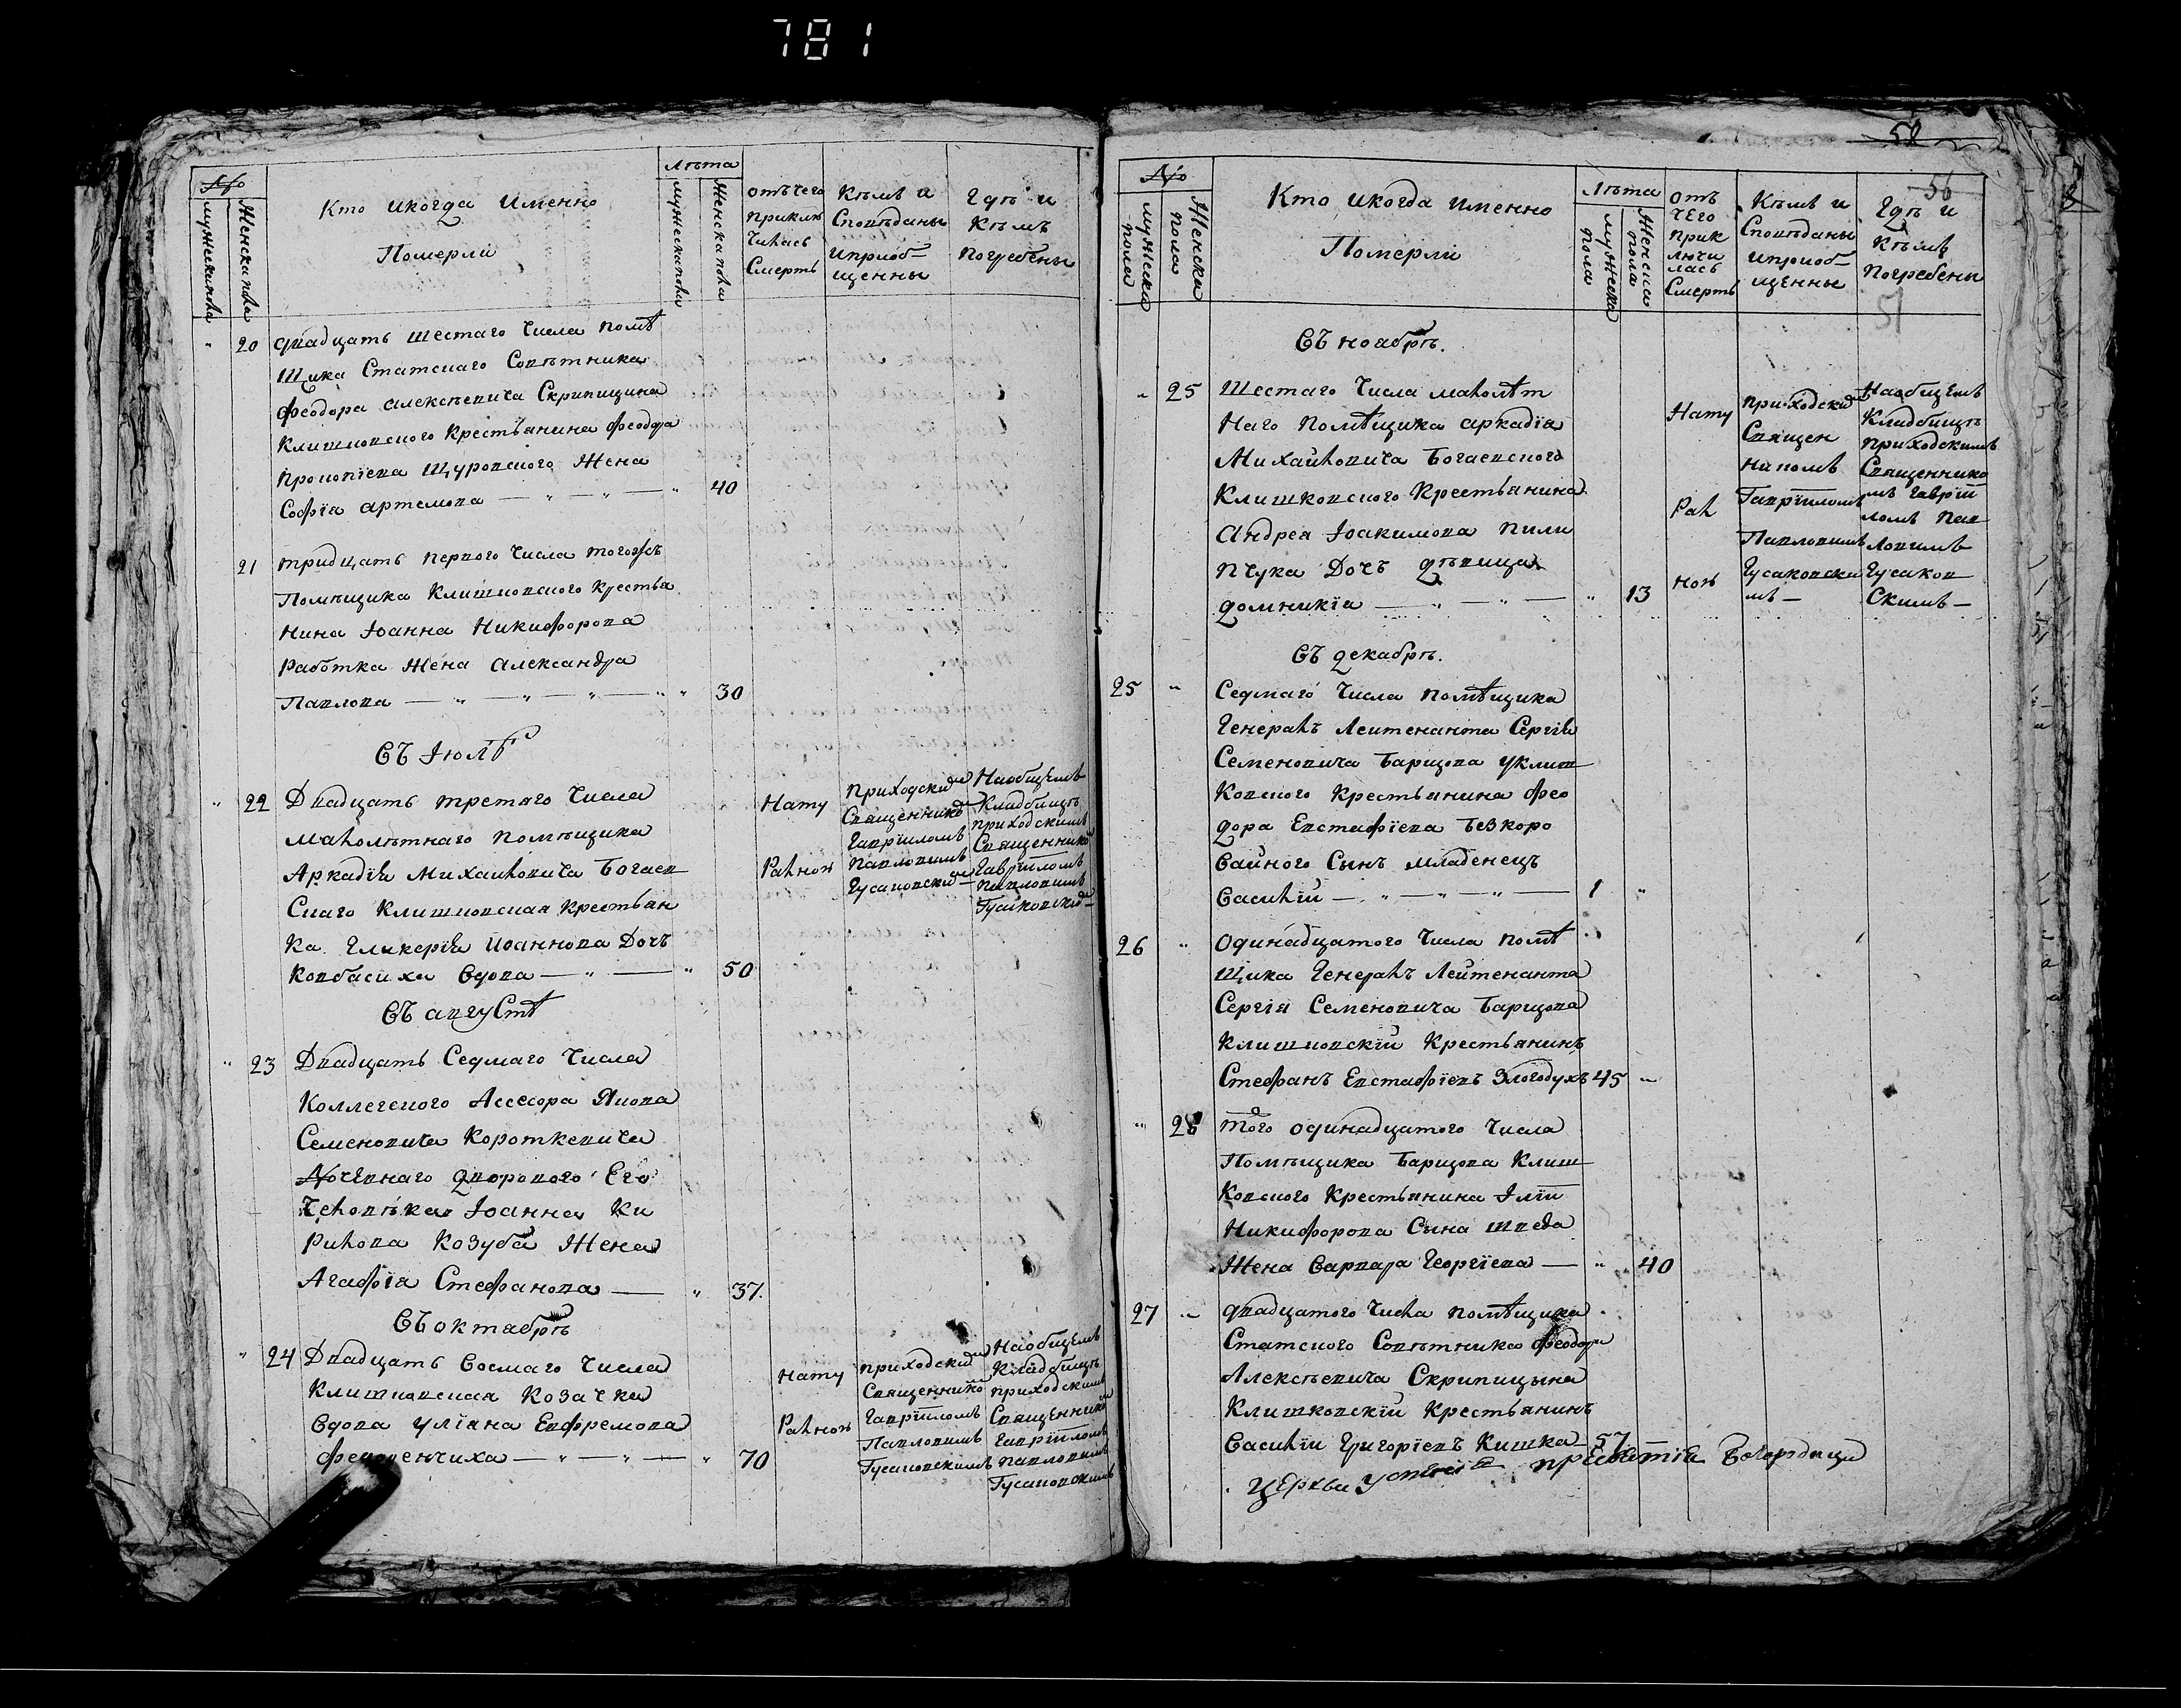 781
№
мужеска пола
Женска пола
Кто икогда Именно
Померли
Лѣта
мужеска пола
Женска пола
отъ чего
приклю
чилась
Смерть
Кѣмъ и
Сповѣданы
иприоб-
щенны
Гдѣ и
Кѣмъ
погребены
" 20 двадцать шестаго Числа помѣ
Щика Статского Совѣтника
Феодора алексѣевича Скрипицина
Клишковского Крестьянина Феодора
Прокопїева Щуровского Жена
Софїя артемова — " — " — " 40
21 тридцать первого Числа тогожъ
Помѣщика Клишковского крестья
нина Іоанна Никифорова
Работка Жена Александра
Павлова — " — " — " — " 30
Въ Іюлѣ
" 22 Двадцать третяго Числа
малолѣтнаго помѣщика
Аркадїя Михаиловича Богаев
Скаго Клишковская Крестьян
ка Гликерїя Иоаннова Дочъ
Ковбасиха Вдова — " — " 50
Нату
Ральнои
приходским
Священником
Гаврїиломъ
павловимъ
Гусаковским
Наобщемъ
Кладбищѣ
приходскимъ
Священником
Гаврїиломъ
павловимъ
Гусаковским
Въ августѣ
" 23 Двадцать Седмаго Числа
Коллегского Асесора Якова
Семеновича Короткевича
Дочернаго дворового Его
Человѣка Іоанна Ки
рилова Козуба Жена
Агафїя Стефанова — " 37.
Въ октябрѣ
" 24 Двадцать Восмаго Числа
Клишковская Козачка
Вдова улїяна Евфремова
— " — " — " 70
Нату
Ральнои
приходским
Священнико
Гаврїиломъ
Павловимъ
Гусаковскимъ
Наобщемъ
Кладбищѣ
приходскимъ
Священником
Гаврїиломъ
павловимъ
Гусаковскимъ
58
56
51
№
мужеска
пола
Женска
пола
Кто икогда именно
Померли
Лѣта
мужеска
пола
Женска
пола
отъ
чего
прик
лючи
лась
Смерть
Кѣмъ и
Сповѣданы
иприоб-
щенны
Гдѣ и
Кѣмъ
погребены
Въ ноябрѣ.
" 25 Шестаго Числа малолѣт
Наго помѣщика аркадїя
Михайловича Богаевского
Клишковского Крестьянина
Андрея Іоакимова Пили
пчука Дочъ дѣвица
домникїя — " — " — " 13
Нату
Рал
нои
приходским
Священ
никомъ
Гаврїиломъ
Павловимъ
Гусаковски
мъ —
Наобщемъ
Кладбищѣ
приходскимъ
Священнико
мъ Гаврїи
ломъ Пав
ловимъ
Гусаков
Скимъ —
Въ декабрѣ.
25 " Седмаго Числа помѣщика
Генералъ Леитенанта Сергїя
Семеновича Барщова уклиш
Ковского Крестьянина Фео
дора Евстафїева Безкоро
вайного Сынъ младенецъ
Василїй — " — " — " — 1 "
26 " Одинадцатого Числа помѣ
Щика Генералъ Лейтенанта
Сергїя Семеновича Барщова
Клишковскїй Крестьянинъ
Стефанъ Евстафїевъ Злогодухъ 45 "
" 26 того одинадцатого Числа
Помѣщика Барщова Клиш
Ковского Крестьянина Ілїи
Никифорова Сына шведа
Жена Варвара Георгїева — " 40
27 " двадцатого Числа помѣщика
Статского Совѣтника Феодора
Алексѣевича Скрипицына
Клишковскїй Крестьянинъ
Василїи Григорїевъ Кишка 57
Церкви Успенїя пресвятїя Богородици